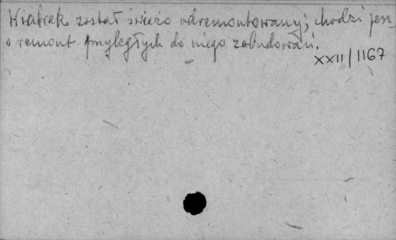 Wiatrak został świeżo odremontowany; chodzi jesz-
o remont przyległych do niego zabudowań.
XXII/1167